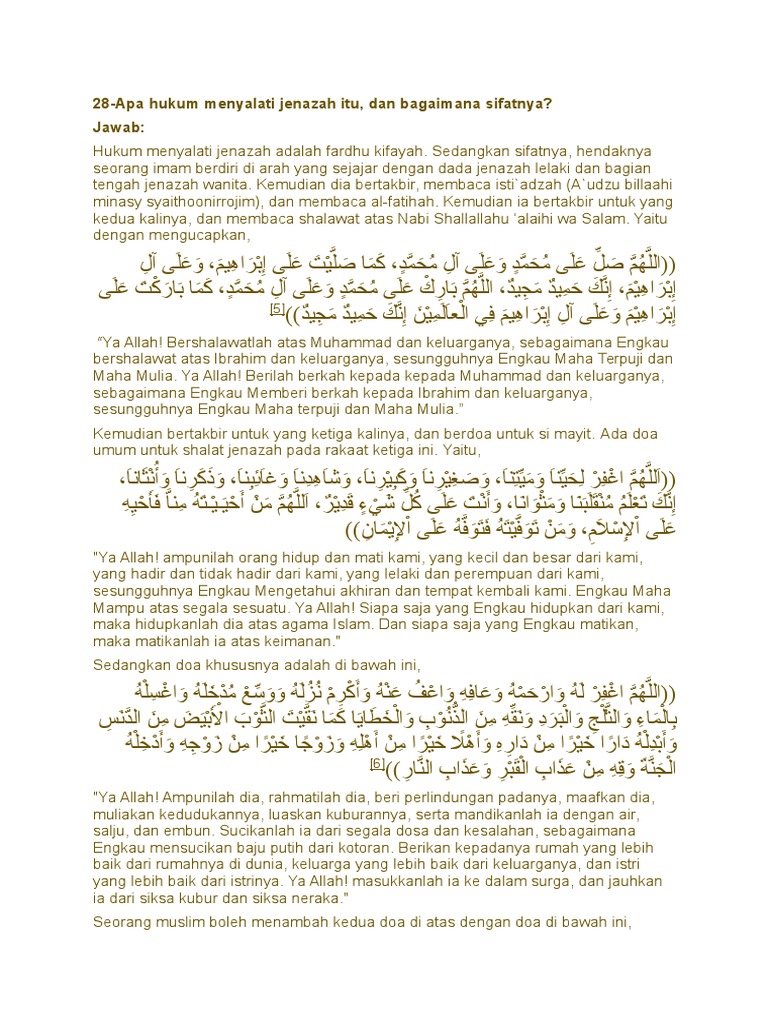 28-Apa hukum menyalati jenazah itu, dan bagaimana sifatnya?
Jawab:
Hukum menyalati jenazah adalah fardhu kifayah. Sedangkan sifatnya, hendaknya
seorang imam berdiri di arah yang sejajar dengan dada jenazah lelaki dan bagian
tengah jenazah wanita. Kemudian dia bertakbir, membaca isti`adzah (A`udzu billaahi
minasy syaithoonirrojim), dan membaca al-fatihah. Kemudian ia bertakbir untuk yang
kedua kalinya, dan membaca shalawat atas Nabi Shallallahu ‘alaihi wa Salam. Yaitu
dengan mengucapkan,
((اللَّهُمَّ صَلِّ عَلَى مُحَمَّدٍ وَعَلَى آلِ مُحَمَّدٍ، كَمَا صَلَّيْتَ عَلَى إِبْرَاهِيمَ، وَعَلَى آلِ
إِبْرَاهِيْمَ، إِنَّكَ حَمِيدٌ مَجِيدٌ، اللَّهُمَّ بَارِكْ عَلَى مُحَمَّدٍ وَعَلَى آلِ مُحَمَّدٍ، كَمَا بَارَكْتَ عَلَى
إِبْرَاهِيْمَ وَعَلَى آلِ إِبْرَاهِيمَ فِي الْعَالَمِيْنَ إِنَّكَ حَمِيدٌ مَجِيدٌ))[5]
“Ya Allah! Bershalawatlah atas Muhammad dan keluarganya, sebagaimana Engkau
bershalawat atas Ibrahim dan keluarganya, sesungguhnya Engkau Maha Terpuji dan
Maha Mulia. Ya Allah! Berilah berkah kepada kepada Muhammad dan keluarganya,
sebagaimana Engkau Memberi berkah kepada Ibrahim dan keluarganya,
sesungguhnya Engkau Maha terpuji dan Maha Mulia.”
Kemudian bertakbir untuk yang ketiga kalinya, dan berdoa untuk si mayit. Ada doa
umum untuk shalat jenazah pada rakaat ketiga ini. Yaitu,
((اَللَّهُمَّ اغْفِرْ لِحَيِّنَا وَمَيِّتِنَا، وَصَغِيْرِنَا وَكَبِيْرِنَا، وَشَاهِدِنَا وَغَائِبِنَا، وَذَكَرِنَا وَأُنْثَانَا،
إِنَّكَ تَعْلَمُ مُنْقَلَبَنَا وَمَثْوَانَا، وَأَنْتَ عَلَى كُلِّ شَيْءٍ قَدِيْرٌ، اَللَّهُمَّ مَنْ أَحْيَـيْـتَهُ مِنَّا فَأَحْيِهِ
عَلَى اْلإِسْلَامِ، وَمَنْ تَوَفَّيْتَهُ فَتَوَفَّهُ عَلَى اْلإِيْمَانِ))
"Ya Allah! ampunilah orang hidup dan mati kami, yang kecil dan besar dari kami,
yang hadir dan tidak hadir dari kami, yang lelaki dan perempuan dari kami,
sesungguhnya Engkau Mengetahui akhiran dan tempat kembali kami. Engkau Maha
Mampu atas segala sesuatu. Ya Allah! Siapa saja yang Engkau hidupkan dari kami,
maka hidupkanlah dia atas agama Islam. Dan siapa saja yang Engkau matikan,
maka matikanlah ia atas keimanan."
Sedangkan doa khususnya adalah di bawah ini,
((اللَّهُمَّ اغْفِرْ لَهُ وَارْحَمْهُ وَعَافِهِ وَاعْفُ عَنْهُ وَأَكْرِمْ نُزُلَهُ وَوَسِّعْ مُدْخَلَهُ وَاغْسِلْهُ
بِالْمَاءِ وَالثَّلْجِ وَالْبَرَدِ وَنَقِّهِ مِنَ الذُّنُوْبِ وَالْخَطَايَا كَمَا نَقَّيْتَ الثَّوْبَ الأَبْيَضَ مِنَ الدَّنَسِ
وَأَبْدِلْهُ دَارًا خَيْرًا مِنْ دَارِهِ وَأَهْلًا خَيْرًا مِنْ أَهْلِهِ وَزَوْجًا خَيْرًا مِنْ زَوْجِهِ وَأَدْخِلْهُ
الْجَنَّةَ وَقِهِ مِنْ عَذَابِ الْقَبْرِ وَعَذَابِ النَّارِ))[6]
"Ya Allah! Ampunilah dia, rahmatilah dia, beri perlindungan padanya, maafkan dia,
muliakan kedudukannya, luaskan kuburannya, serta mandikanlah ia dengan air,
salju, dan embun. Sucikanlah ia dari segala dosa dan kesalahan, sebagaimana
Engkau mensucikan baju putih dari kotoran. Berikan kepadanya rumah yang lebih
baik dari rumahnya di dunia, keluarga yang lebih baik dari keluarganya, dan istri
yang lebih baik dari istrinya. Ya Allah! masukkanlah ia ke dalam surga, dan jauhkan
ia dari siksa kubur dan siksa neraka."
Seorang muslim boleh menambah kedua doa di atas dengan doa di bawah ini,